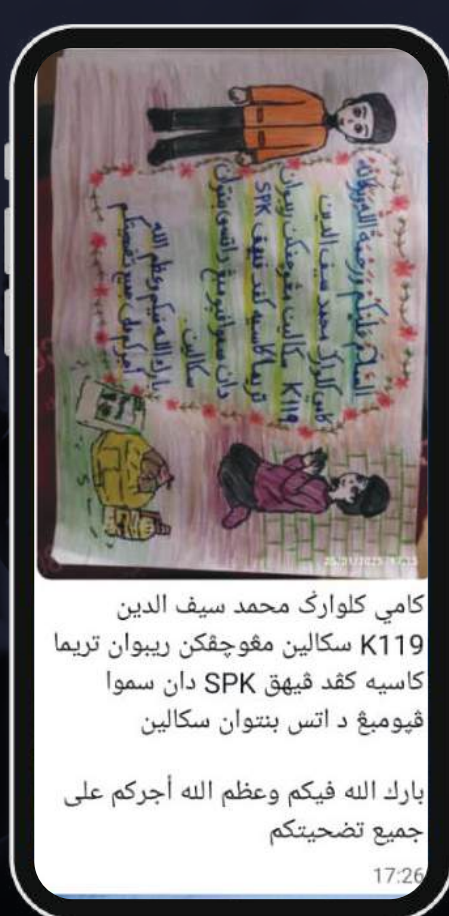 السلام عليكم ورحمة الله وبركاته
كامي كلوارݢ محمد سيف الدين
K119 سكالين مڠوچڤكن ريبوان
تريما كاسيه كڤد ڤيهق SPK
سكالين.
بارك الله فيكم وعظم الله
أجركم على جميع تضحيتكم
كامي كلوارݢ محمد سيف الدين
K119 سكالين مڠوچڤكن ريبوان تريما
كاسيه كڤد ڤيهق SPK دان سموا
ڤپومبڠ د اتس بنتوان سكالين
بارك الله فيكم وعظم الله أجركم على
جميع تضحيتكم
17:26